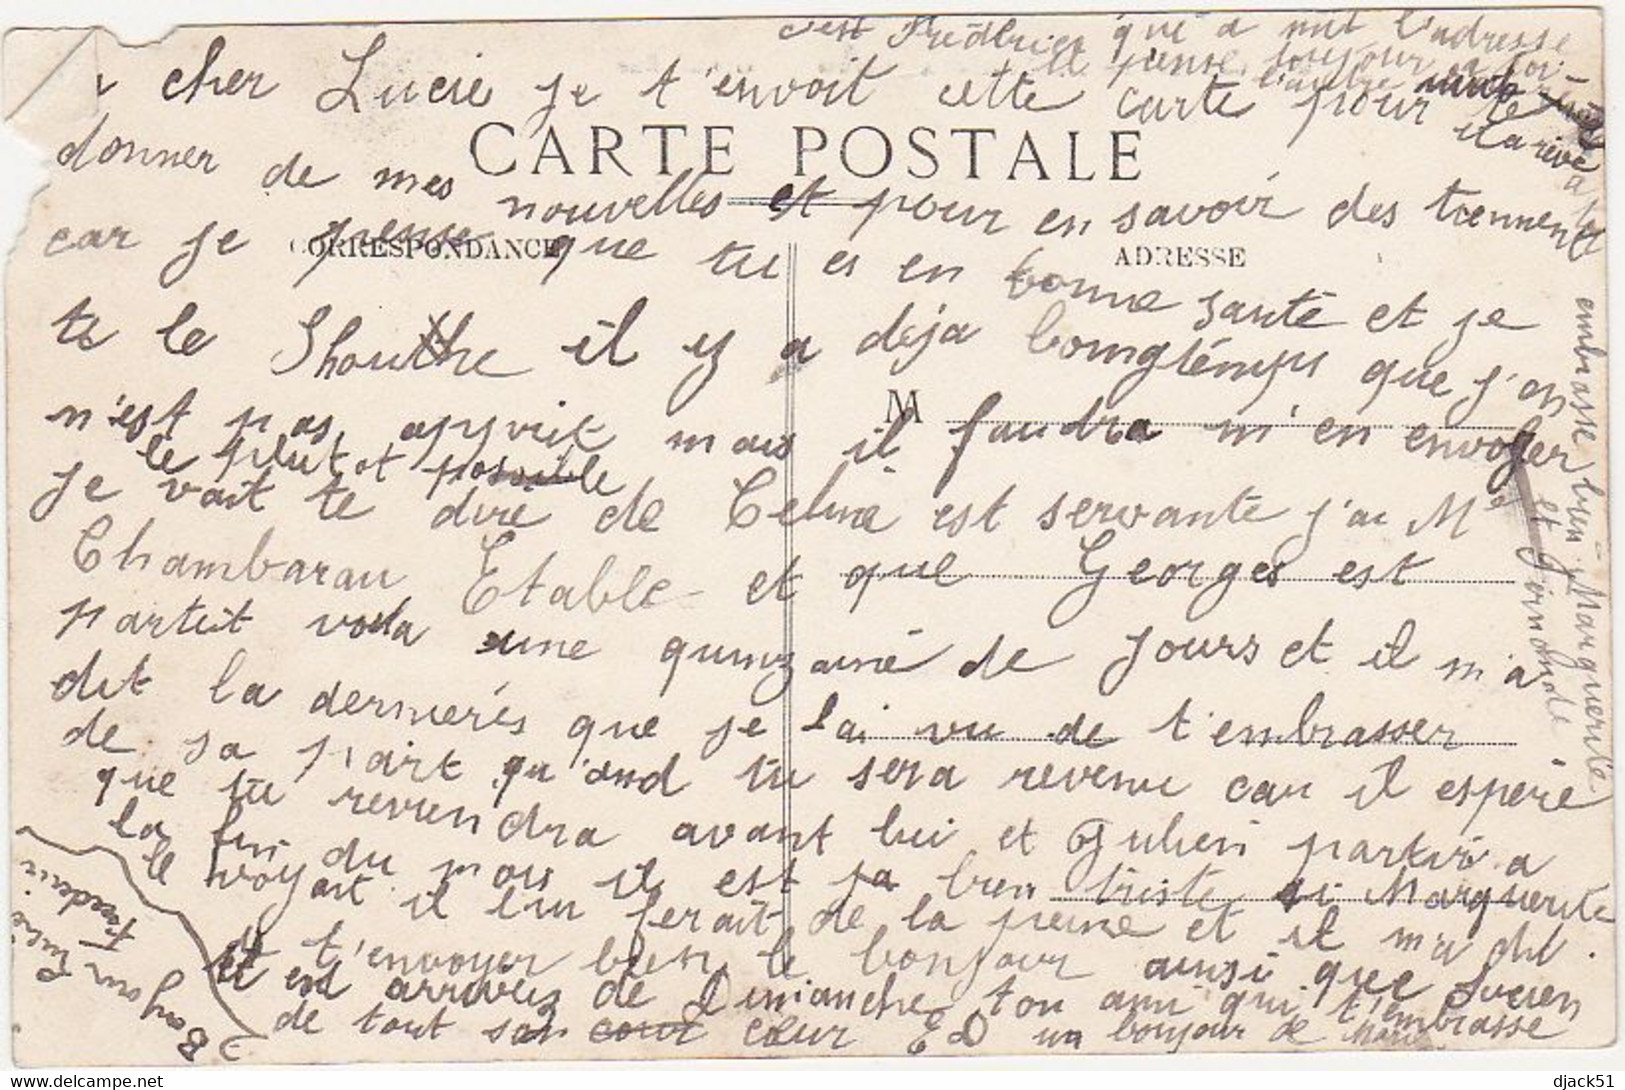 c'est Frédéric qui a mit l'adresse
il pense toujour a toi
cher Lucie je t'envoit cette carte pour te
CARTE POSTALE
donner de mes nouvelles et pour en savoir des tiennent
CORRESPONDANCE
ADRESSE
car je pense que tu es en bonne santé et je
te le il y a deja longtemps que j'en
M
n'est pas apprit mais il faudra m'en envoyer
le plutot possible
je vait te dire de Celine est servante j'ai Mme
Chambarau Etable et que Georges est
partit voila une quinzaine de jours et il m'a
dit la derniéres que je l'ai vu de t'embrasser
de sa part qu'and tu sera revenu car il espère
que tu reviendra avant lui et Julien partira
la fin du mois il est ja bien triste si Marguerite
le voyait il lui ferait de la peine et il m'a dit
de t'envoyer bien le bonjour ainsi que Lucien
et est arrivez de Dimanche ton ami qui t'embrasse
de tout son cour cœur ED un bonjour de
Bonjour
Lucie
Frederic
embrasse bien Marguerite
et Girmonde
djack51